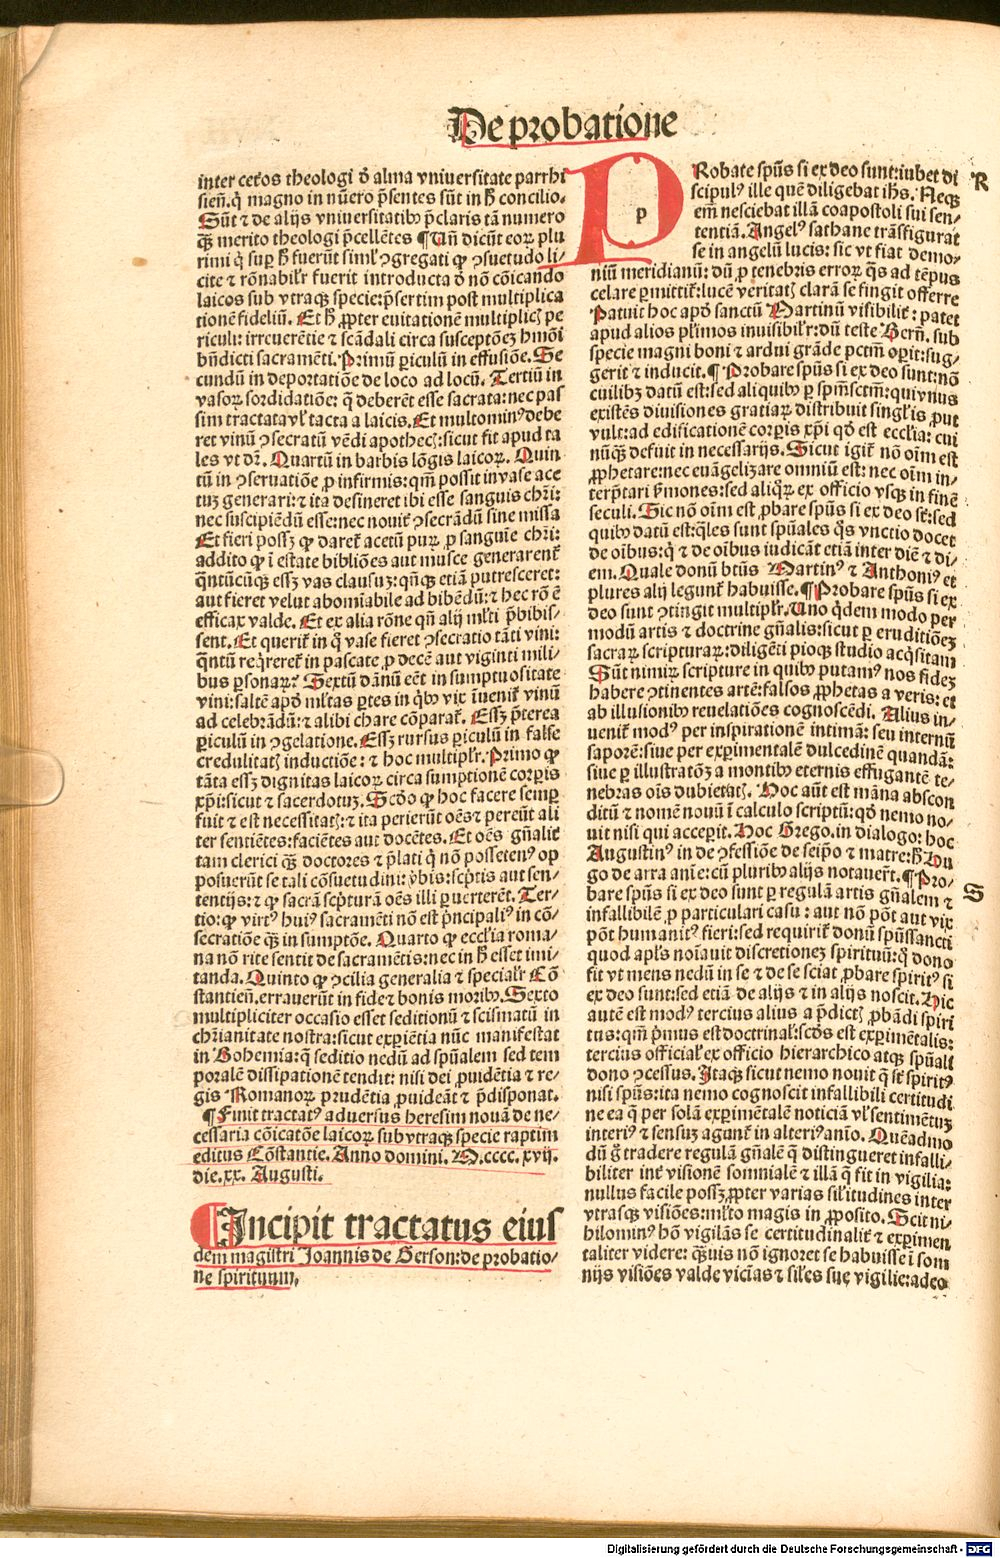 De probatione
inter cet́os theologi ð alma vniuersitate parrhi
sieñ. q̇ magno in nũero p̃sentes sũt in h̃ concilio.
Sũt ⁊ de alijs vniuersitatibꝰ p̃claris tã numero
qꝫ merito theologi p̃cellẽtes ¶ Uñ dicũt eoꝝ plu
rimi q̇ suꝑ h̃ fuerũt simul̉ ꝯgregati ꝙ ꝯsuetudo li⸗
cite ⁊ rõnabilr̃ fuerit introducta ð nõ cõicando
laicos sub vtraqꝫ specie: p̃sertim post multiplica
tionẽ fideliũ. Et h̃ ꝓpter euitationẽ multiplicꝭ pe
riculi: irreuerẽtie ⁊ scãdali circa susceptõeꝫ hmõi
bñdicti sacramẽti. Primũ ꝑiculũ in effusiõe. Se
cundũ in deportatiõe de loco ad locũ. Tertiũ in
vasoꝝ sordidatiõe: q̃ deberẽt esse sacrata: nec pas
sim tractata vl̉ tacta a laicis. Et multominꝰ debe
ret vinũ ꝯsecratũ vẽdi apothecꝭ: sicut fit apud ta
les vt dr̃. Quartũ in barbis lõgis laicoꝝ. Quin
tũ in ꝯseruatiõe ꝓ infirmis: qm̃ possit in vase ace
tuꝫ generari: ⁊ ita desineret ibi esse sanguis chr̃i:
nec suscipiẽdũ esse: nec nouit̃ ꝯsecrãdũ sine missa
Et fieri possꝫ ꝙ daret̃ acetũ puꝝ ꝓ sanguie chr̃i:
addito ꝙ ĩ estate bibliões aut musce generarent̃
q̃ntũcũqꝫ essꝫ vas clausuꝫ: qñqꝫ etiã putresceret:
aut fieret velut abomĩabile ad bibẽdũ: ⁊ hec rõ ẽ
efficax valde. Et ex alia rõne qñ alij ml̉ti p̃bibis⸗
sent. Et querit̃ in q̃ vase fieret ꝯsecratio tãti vini:
q̃ntũ reqreret̃ in pascate ꝓ decẽ aut viginti mili⸗
bus ꝑsonaꝝ? Sextũ dãnũ eẽt in sumptuositate
vini: saltẽ apð ml̉tas ꝑtes in qbꝰ vix ĩuenit̃ vinũ
ad celebrãdũ: ⁊ alibi chare cõparat̃. Essꝫ p̃terea
ꝑiculũ in ꝯgelatione. Essꝫ rursus ꝑiculũ in false
credulitatꝭ inductiõe: ⁊ hoc multiplr̃. Primo ꝙ
tãta essꝫ dignitas laicoꝝ circa sumptionẽ corꝑis
xp̃i: sicut ⁊ sacerdotuꝫ. Scðo ꝙ hoc facere semꝑ
fuit ⁊ est necessitatꝭ: ⁊ ita perierũt oẽs ⁊ pereũt ali
ter sentiẽtes: faciẽtes aut docẽtes. Et oẽs gñalit̃
tam clerici qꝫ doctores ⁊ p̃lati q̇ nõ possetenꝰ op
posuerũt se tali cõsuetudini: v̉bis: scp̃tis aut sen⸗
tentijs: ⁊ ꝙ sacrã scp̃turã oẽs illi ꝑuerterẽt. Ter⸗
tio: ꝙ virtꝰ huiꝰ sacramẽti nõ est p̃ncipaliꝰ in cõ⸗
secratiõe qꝫ in sumptõe. Quarto ꝙ eccl̉ia roma⸗
na nõ rite sentit de sacramẽtis: nec in h̃ esset imi⸗
tanda. Quinto ꝙ ꝯcilia generalia ⁊ specialr̃ Cõ
stantieñ. errauerũt in fide ⁊ bonis moribꝰ. Sexto
multipliciter occasio esset seditionũ ⁊ scismatũ in
chr̃ianitate nostra: sicut experiẽtia nũc manifestat
in Bohemia: q̃ seditio nedũ ad spũalem sed tem
poralẽ dissipationẽ tendit: nisi dei ꝓuidẽtia ⁊ re⸗
gis Romanoꝝ prudẽtia ꝓuideãt ⁊ p̃disponat.
¶ Finit tractatꝰ aduersus heresim nouã de ne⸗
cessaria cõicatõe laicoꝝ sub vtraqꝫ specie raptim
editus Cõstantie. Anno domini. M. cccc. xvij.
die. xx. Augusti.
¶ Incipit tractatus eius
dem magistri Joannis de Gerson: de probatio⸗
ne spirituum.
p
PRobate spũs si ex deo sunt: iubet di
scipulꝰ ille quẽ diligebat ih̃s. Neqꝫ
em̃ nesciebat illã coapostoli sui sen⸗
tentiã. Angelꝰ sathane trãsfigurat
se in angelũ lucis: sic vt fiat demo⸗
niũ meridianũ: dũ ꝓ tenebris erroꝝ q̃s ad tẽpus
celare ꝑmittit̃: lucẽ veritatꝭ clarã se fingit offerre
Patuit hoc apð sanctũ Martinũ visibilit̃: patet
apud alios pl̉imos inuisibilr̃: dũ teste Berñ. sub
specie magni boni ⁊ ardui grãde pctm̃ oꝑit: sug⸗
gerit ⁊ inducit. ¶ Probare spũs si ex deo sunt: nõ
cuilibꝫ datũ est: sed aliquibꝰ ꝑ spm̃sctm̃: qui vnus
existẽs diuisiones gratiaꝝ distribuit singl̉is ꝓut
vult: ad edificationẽ corꝑis xp̃i qð est eccl̉ia: cui
nũqꝫ defuit in necessarijs. Sicut igit̃ nõ oĩm est
ꝓphetare: nec euãgelizare omniũ est: nec oĩm in⸗
terp̃tari s̃mones: sed aliqꝝ ex officio vsqꝫ in finẽ
seculi. Sic nõ oĩm est ꝓbare spũs si ex deo st̃: sed
quibꝰ datũ est: q̃les sunt spũales q̃s vnctio docet
de oĩbus: q̇ ⁊ de oĩbus iudicãt etiã inter diẽ ⁊ di⸗
em. Quale donũ btũs Martinꝰ ⁊ Anthoniꝰ et
plures alij legunt̃ habuisse. ¶ Probare spũs si ex
deo sunt ꝯtingit multiplr̃. Uno q̇dem modo per
modũ artis ⁊ doctrine gñalis: sicut ꝑ eruditiõeꝫ
sacraꝝ scripturaꝝ: diligẽti pioqꝫ studio acq̇sitam
Sũt nimiꝝ scripture in quibꝰ putamꝰ nos fideꝫ
habere ꝯtinentes artẽ: falsos ꝓphetas a veris: et
ab illusionibꝰ reuelatiões cognoscẽdi. Alius in⸗
uenit̃ modꝰ per inspirationẽ intimã: seu internũ
saporẽ: siue per experimentalẽ dulcedinẽ quandã:
siue ꝑ illustratõꝫ a montibꝰ eternis effugantẽ te⸗
nebras oĩs dubietatꝭ. Hoc aũt est mãna abscon
ditũ ⁊ nomẽ nouũ ĩ calculo scriptũ: qð nemo no⸗
uit nisi qui acceꝑit. Hoc Grego. in dialogo: hoc
Augustinꝰ in de ꝯfessiõe de seip̃o ⁊ matre: h̃ Hu
go de arra anĩe: cũ pluribꝰ alijs notauer̃t. ¶ Pro⸗
bare spũs si ex deo sunt ꝑ regulã artis gñalem ⁊
infallibilẽ ꝓ particulari casu: aut nõ põt aut vix
põt humanitꝰ fieri: sed requirit̃ donũ spũssancti
quod apl̉s noĩauit discretioneꝫ spirituũ: q̃ dono
fit vt mens nedũ in se ⁊ de se sciat ꝓbare spiritꝰ si
ex deo sunt: sed etiã de alijs ⁊ in alijs noscit. Hic
autẽ est modꝰ tercius alius a p̃dictꝭ ꝓbãdi spiri
tus: qm̃ p̃mus est doctrinal̉: scðs est exp̃imẽtalis:
tercius official̉ ex officio hierarchico atqꝫ spũali
dono ꝯcessus. Itaqꝫ sicut nemo nouit q̃ st̃ spiritꝰ
nisi spũs: ita nemo cognoscit infallibili certitudi
ne ea q̃ per solã exꝑimẽtalẽ noticiã vl̉ sentimẽtuꝫ
interiꝰ ⁊ sensuꝫ agunt̃ in alteriꝰ anĩo. Quẽadmo
dũ g̃ tradere regulã gñalẽ q̃ distingueret infalli⸗
biliter int̃ visionẽ somnialẽ ⁊ illã q̃ fit in vigilia:
nullus facile possꝫ ꝓpter varias sil̉itudines inter
vtrasqꝫ visiões: ml̉to magis in ꝓposito. Scit ni⸗
hilominꝰ hõ vigilãs se certitudinalit̃ ⁊ experimen
taliter videre: qꝫuis nõ ignoret se habuisse ĩ som
nijs visiões valde vicĩas ⁊ sil̉es sue vigilie: adeo
R
S
Digitalisierung gefördert durch die Deutsche Forschungsgemeinschaft - DFG